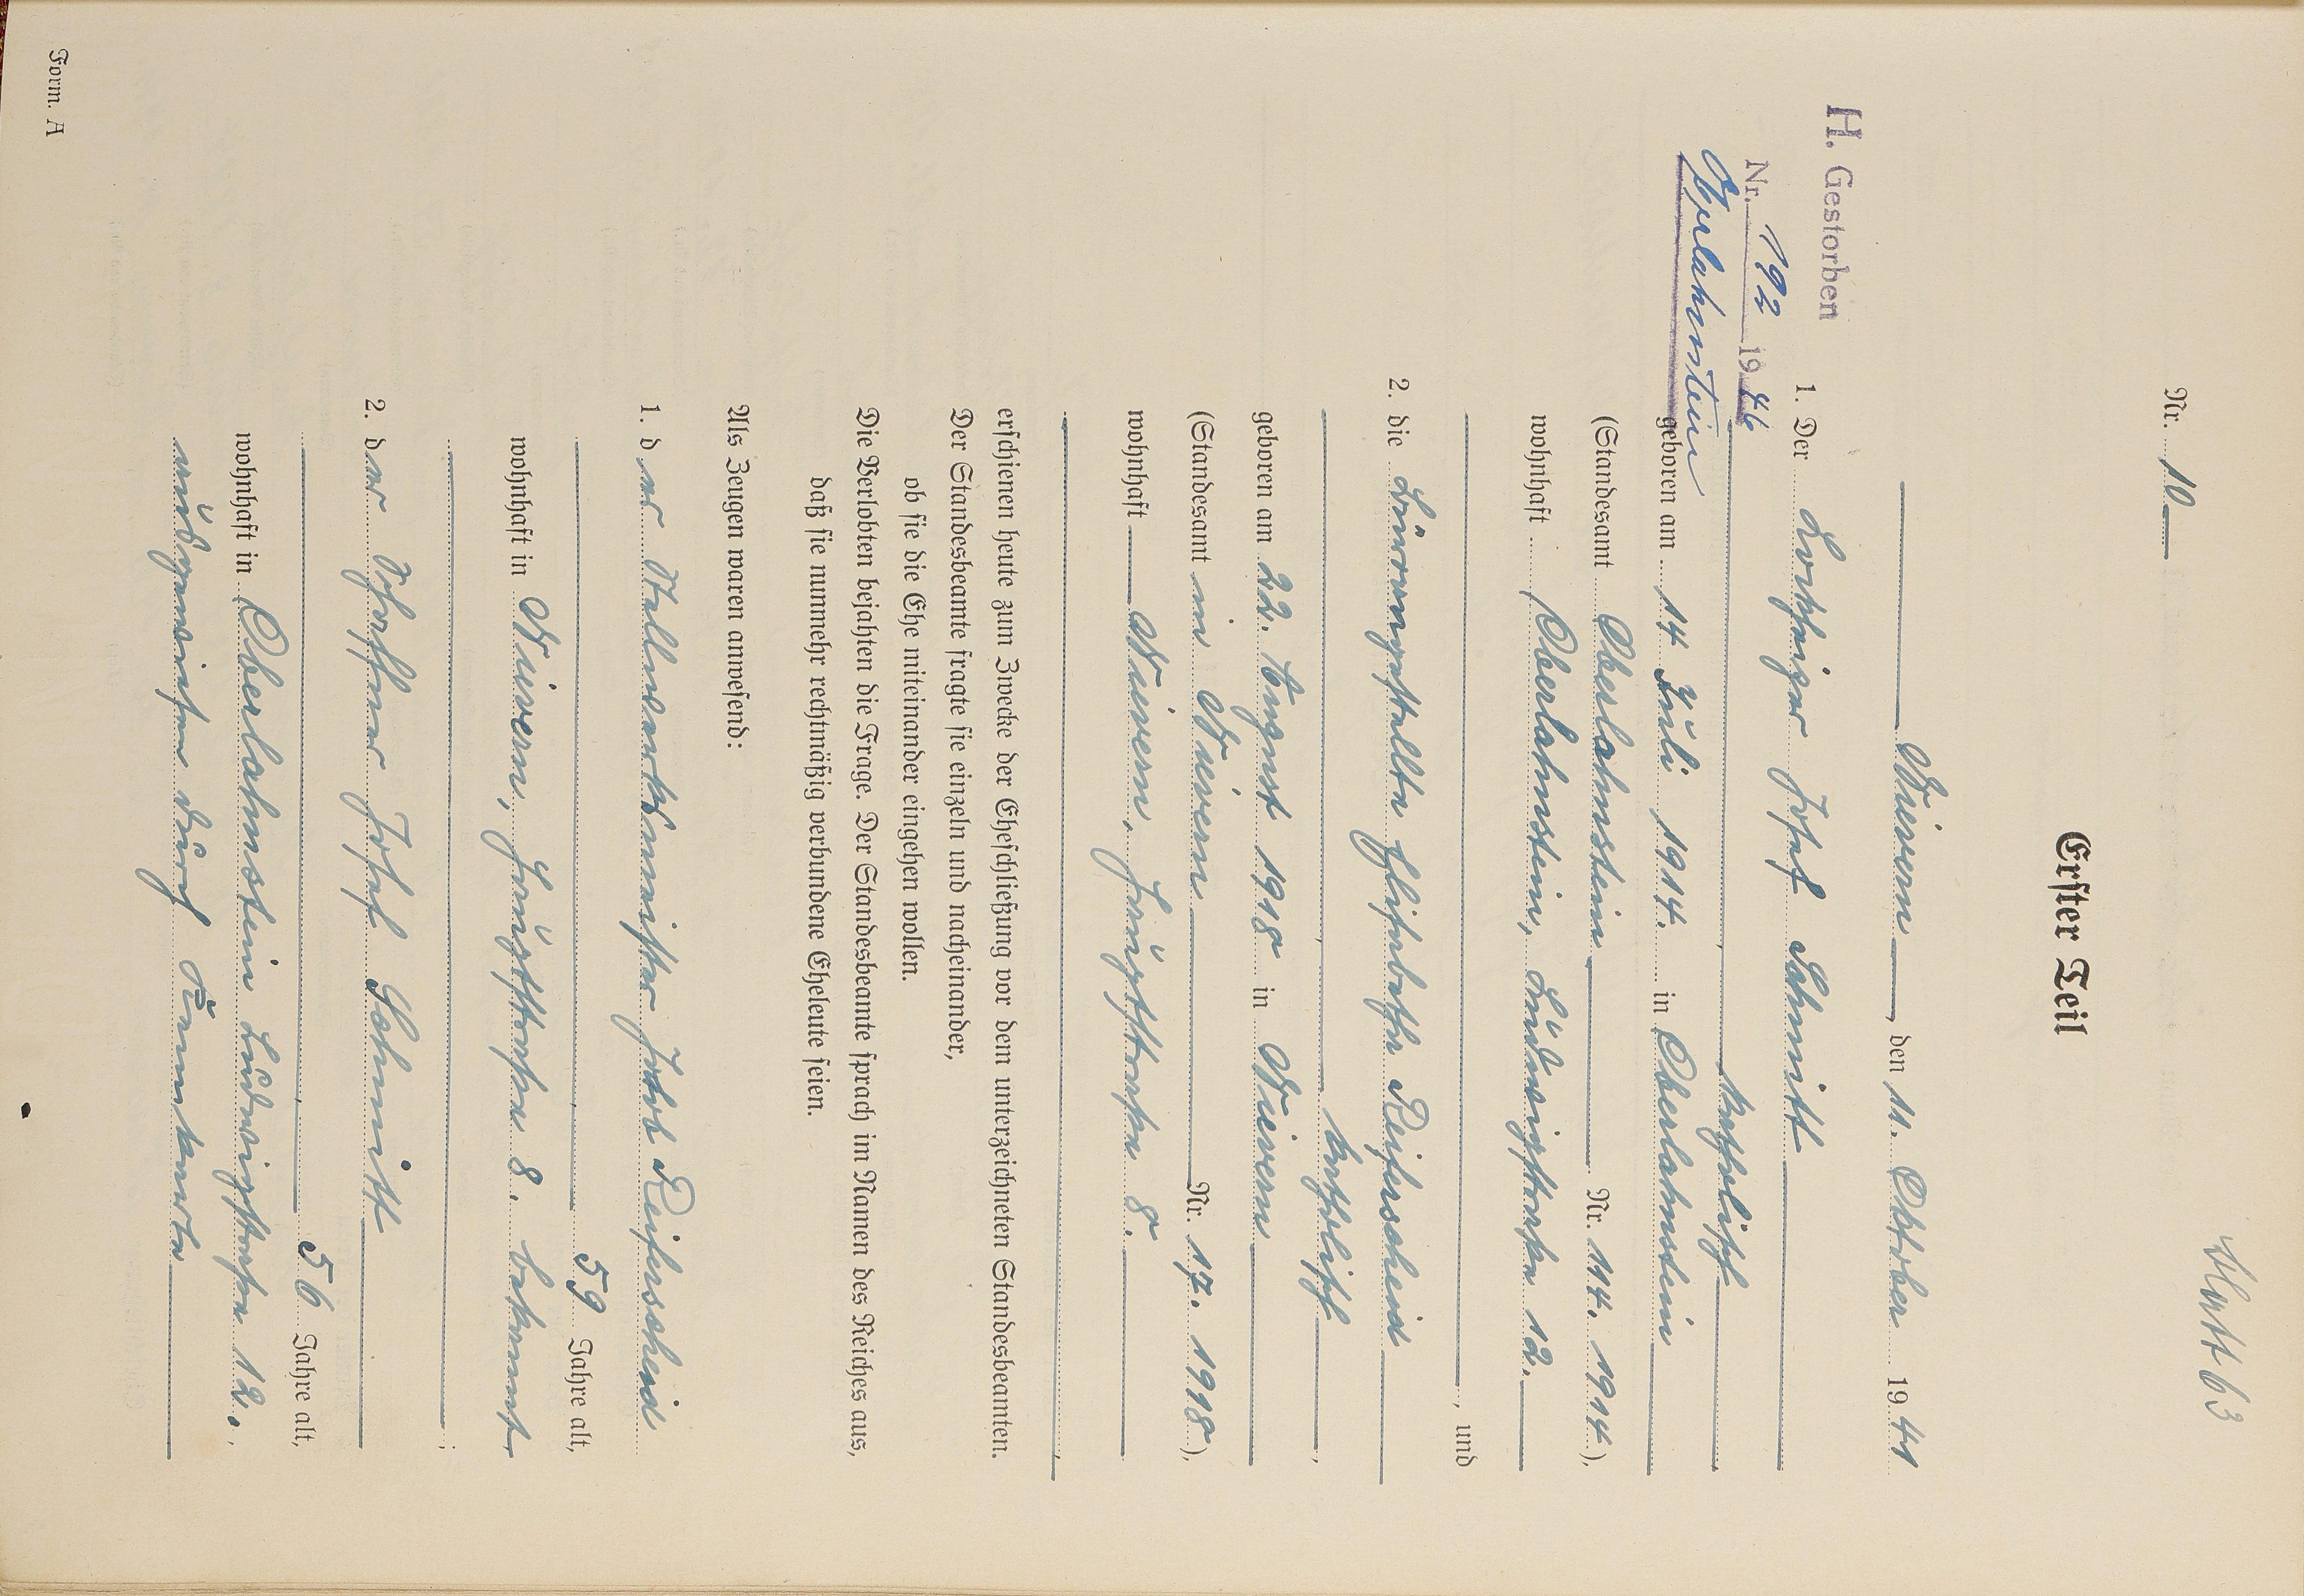 Blatt 63
Nr. 10
Erster Teil
Nievern, den 11. Oktober 1941
H. Gestorben
Nr. 192 1946
Oberlahnstein
1. Der Josef Schmitt
katholisch
geboren am 14 Juli 1914. in Oberlahnstein
(Standesamt Oberlahnstein Nr. 114. 1914.),
wohnhaft Oberlahnstein, Ludwigstraße 12.
, und
2. die Büroangestellte Elisabetha Reiferscheid
katholisch,
geboren am 22. August 1918 in Nievern
(Standesamt in Nievern Nr. 17. 1918),
wohnhaft Nievern, Hauptstraße 8.
,
erschienen heute zum Zwecke der Eheschließung vor dem unterzeichneten Standesbeamten.
Der Standesbeamte fragte sie einzeln und nacheinander,
ob sie die Ehe miteinander eingehen wollen.
Die Verlobten bejahten die Frage. Der Standesbeamte sprach im Namen des Reiches aus,
daß sie nunmehr rechtmäßig verbundene Eheleute seien.
Als Zeugen waren anwesend:
1. der Stellwerksmeister Jakob Reiferscheid
, 59 Jahre alt,
wohnhaft in Nievern, Hauptstraße 8. bekannt,
;
2. der Schaffner Josef Schmitt
, 56 Jahre alt,
wohnhaft in Oberlahnstein Ludwigstraße 12.,
ausgewiesen durch Kennkarte
Form. A